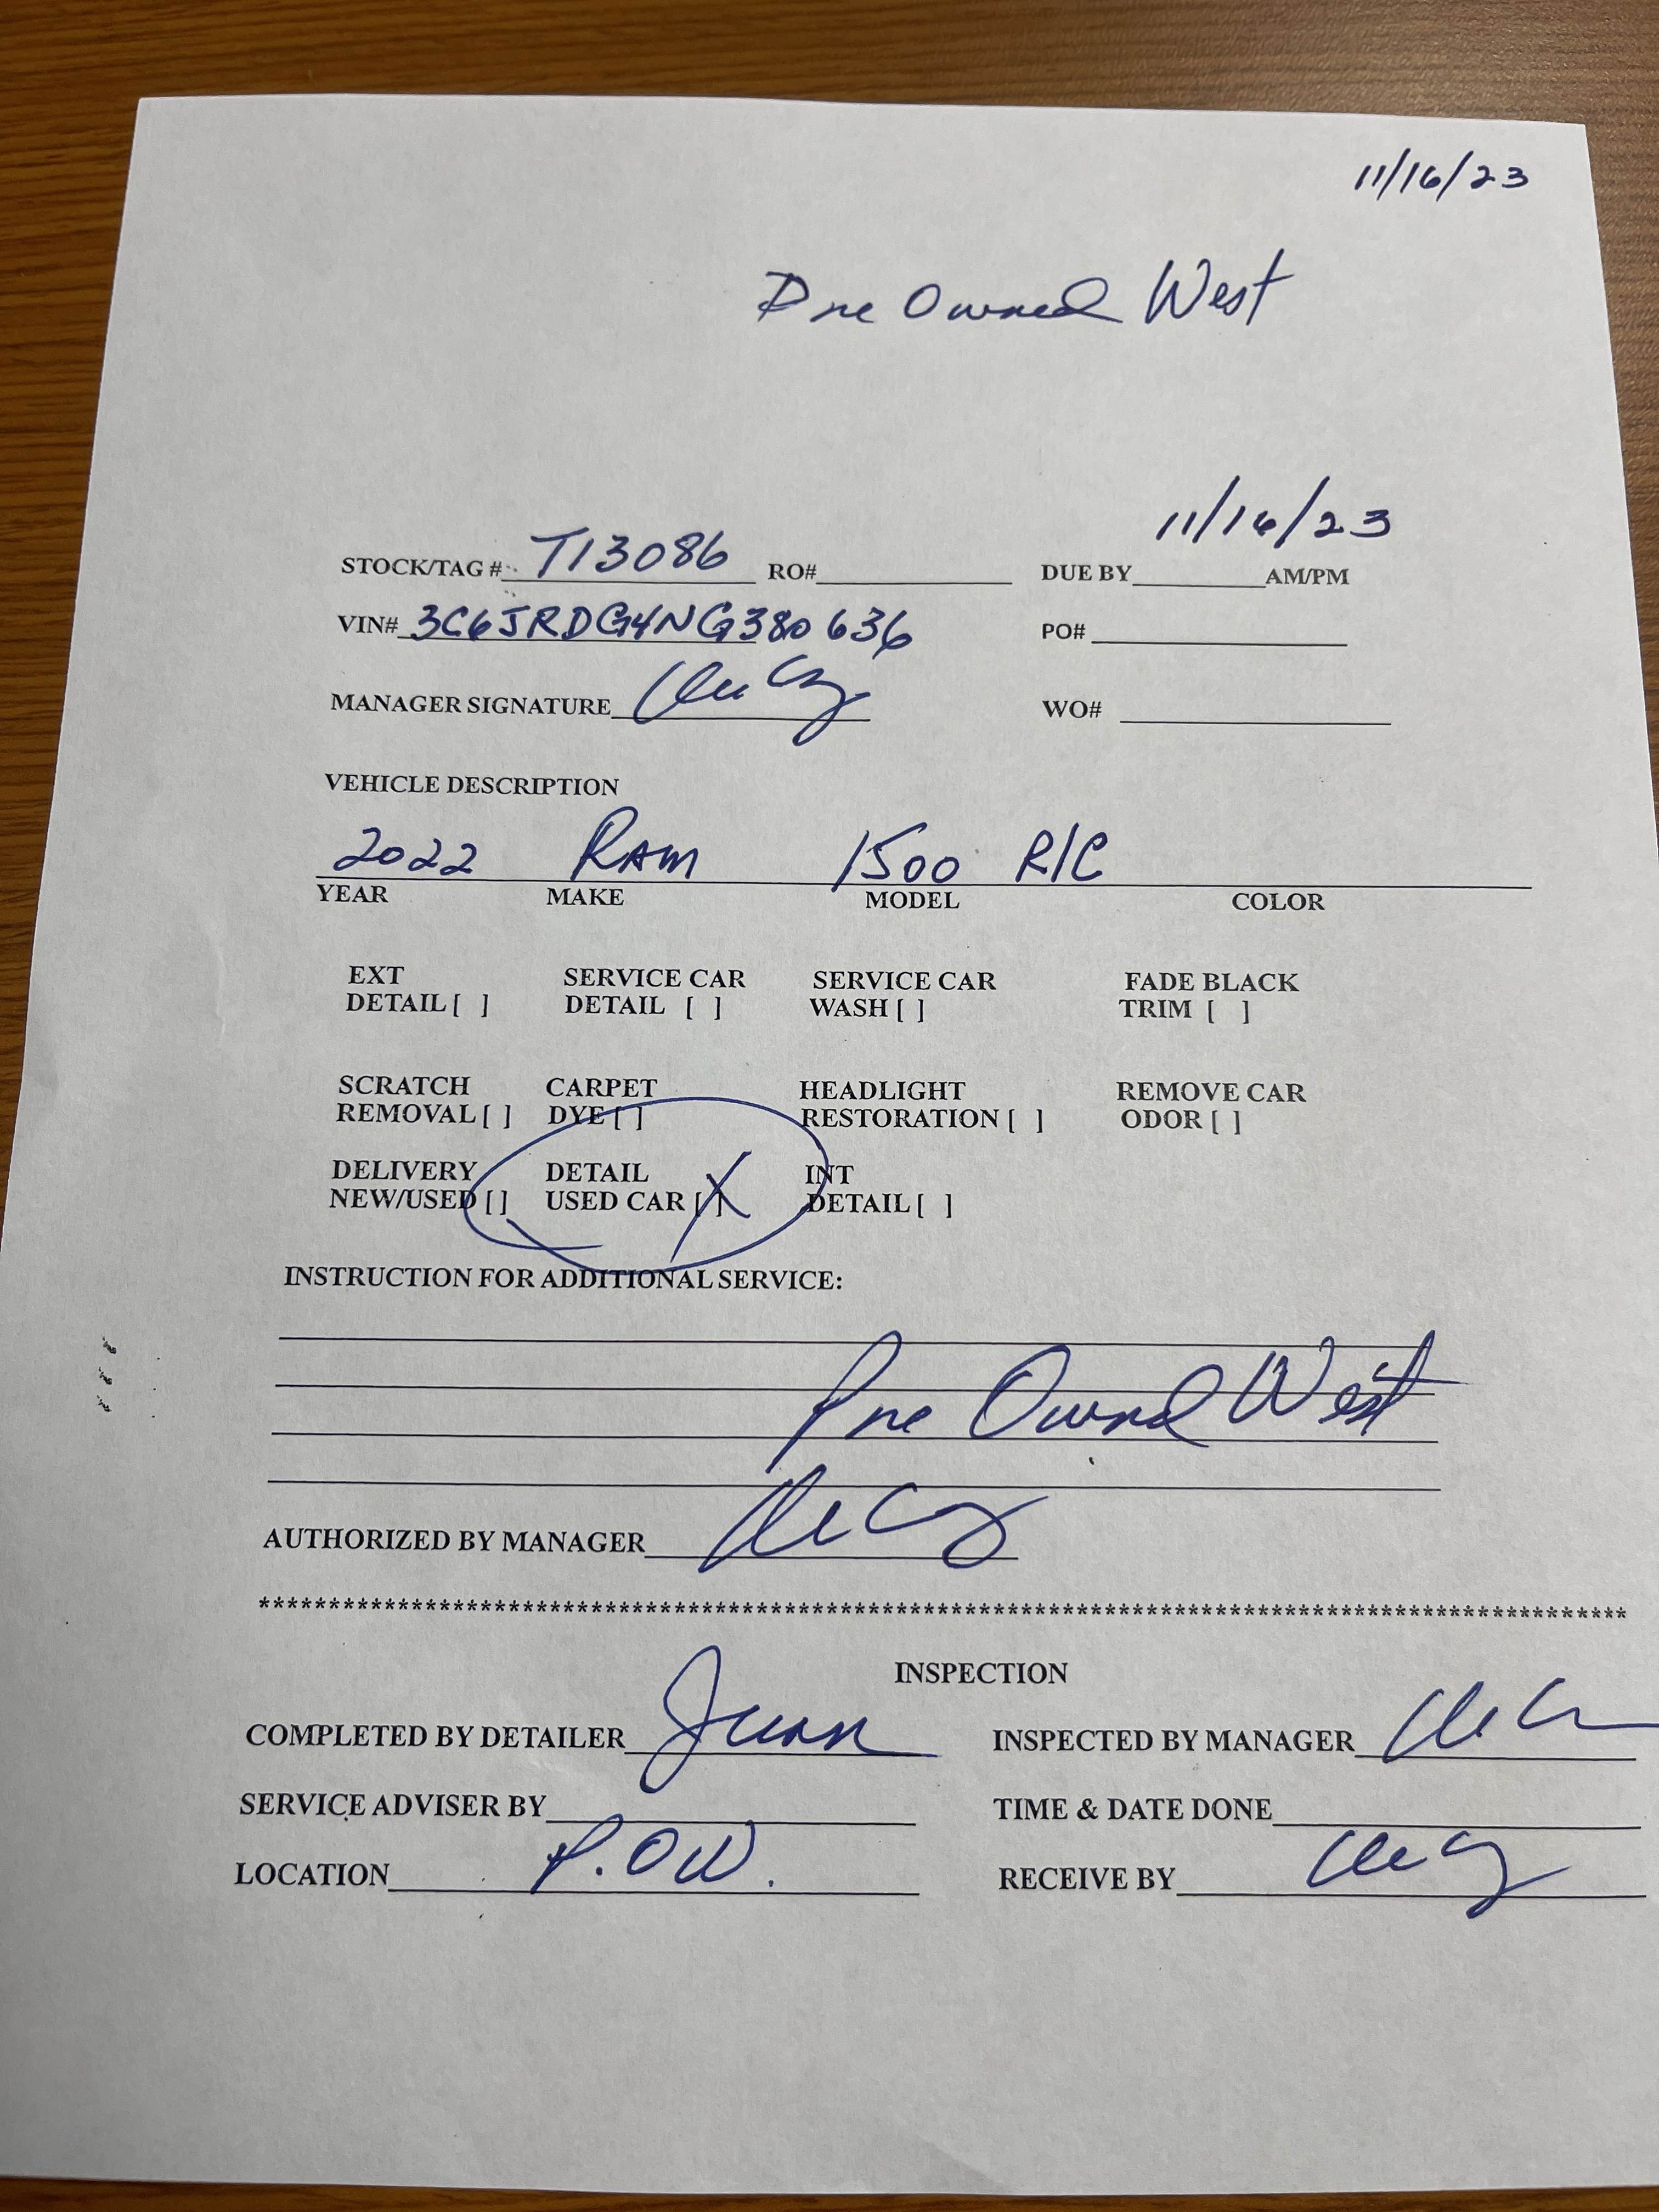 11/16/23
Pre Owned West
11/16/23
STOCK/TAG # T13086 RO# DUE BY AM/PM
VIN# 3C6JRDG4NG380636 PO#
MANAGER SIGNATURE WO#
VEHICLE DESCRIPTION
2022 RAM 1500 R/C
YEAR MAKE MODEL COLOR
EXT SERVICE CAR SERVICE CAR FADE BLACK
DETAIL [ ] DETAIL [ ] WASH [ ] TRIM [ ]
SCRATCH CARPET HEADLIGHT REMOVE CAR
REMOVAL [ ] DYE [ ] RESTORATION [ ] ODOR [ ]
DELIVERY DETAIL INT
NEW/USED [ ] USED CAR [X] DETAIL [ ]
INSTRUCTION FOR ADDITIONAL SERVICE:
Pre Owned West
AUTHORIZED BY MANAGER
INSPECTION
COMPLETED BY DETAILER Juan INSPECTED BY MANAGER
SERVICE ADVISER BY TIME & DATE DONE
LOCATION P.O.W. RECEIVE BY